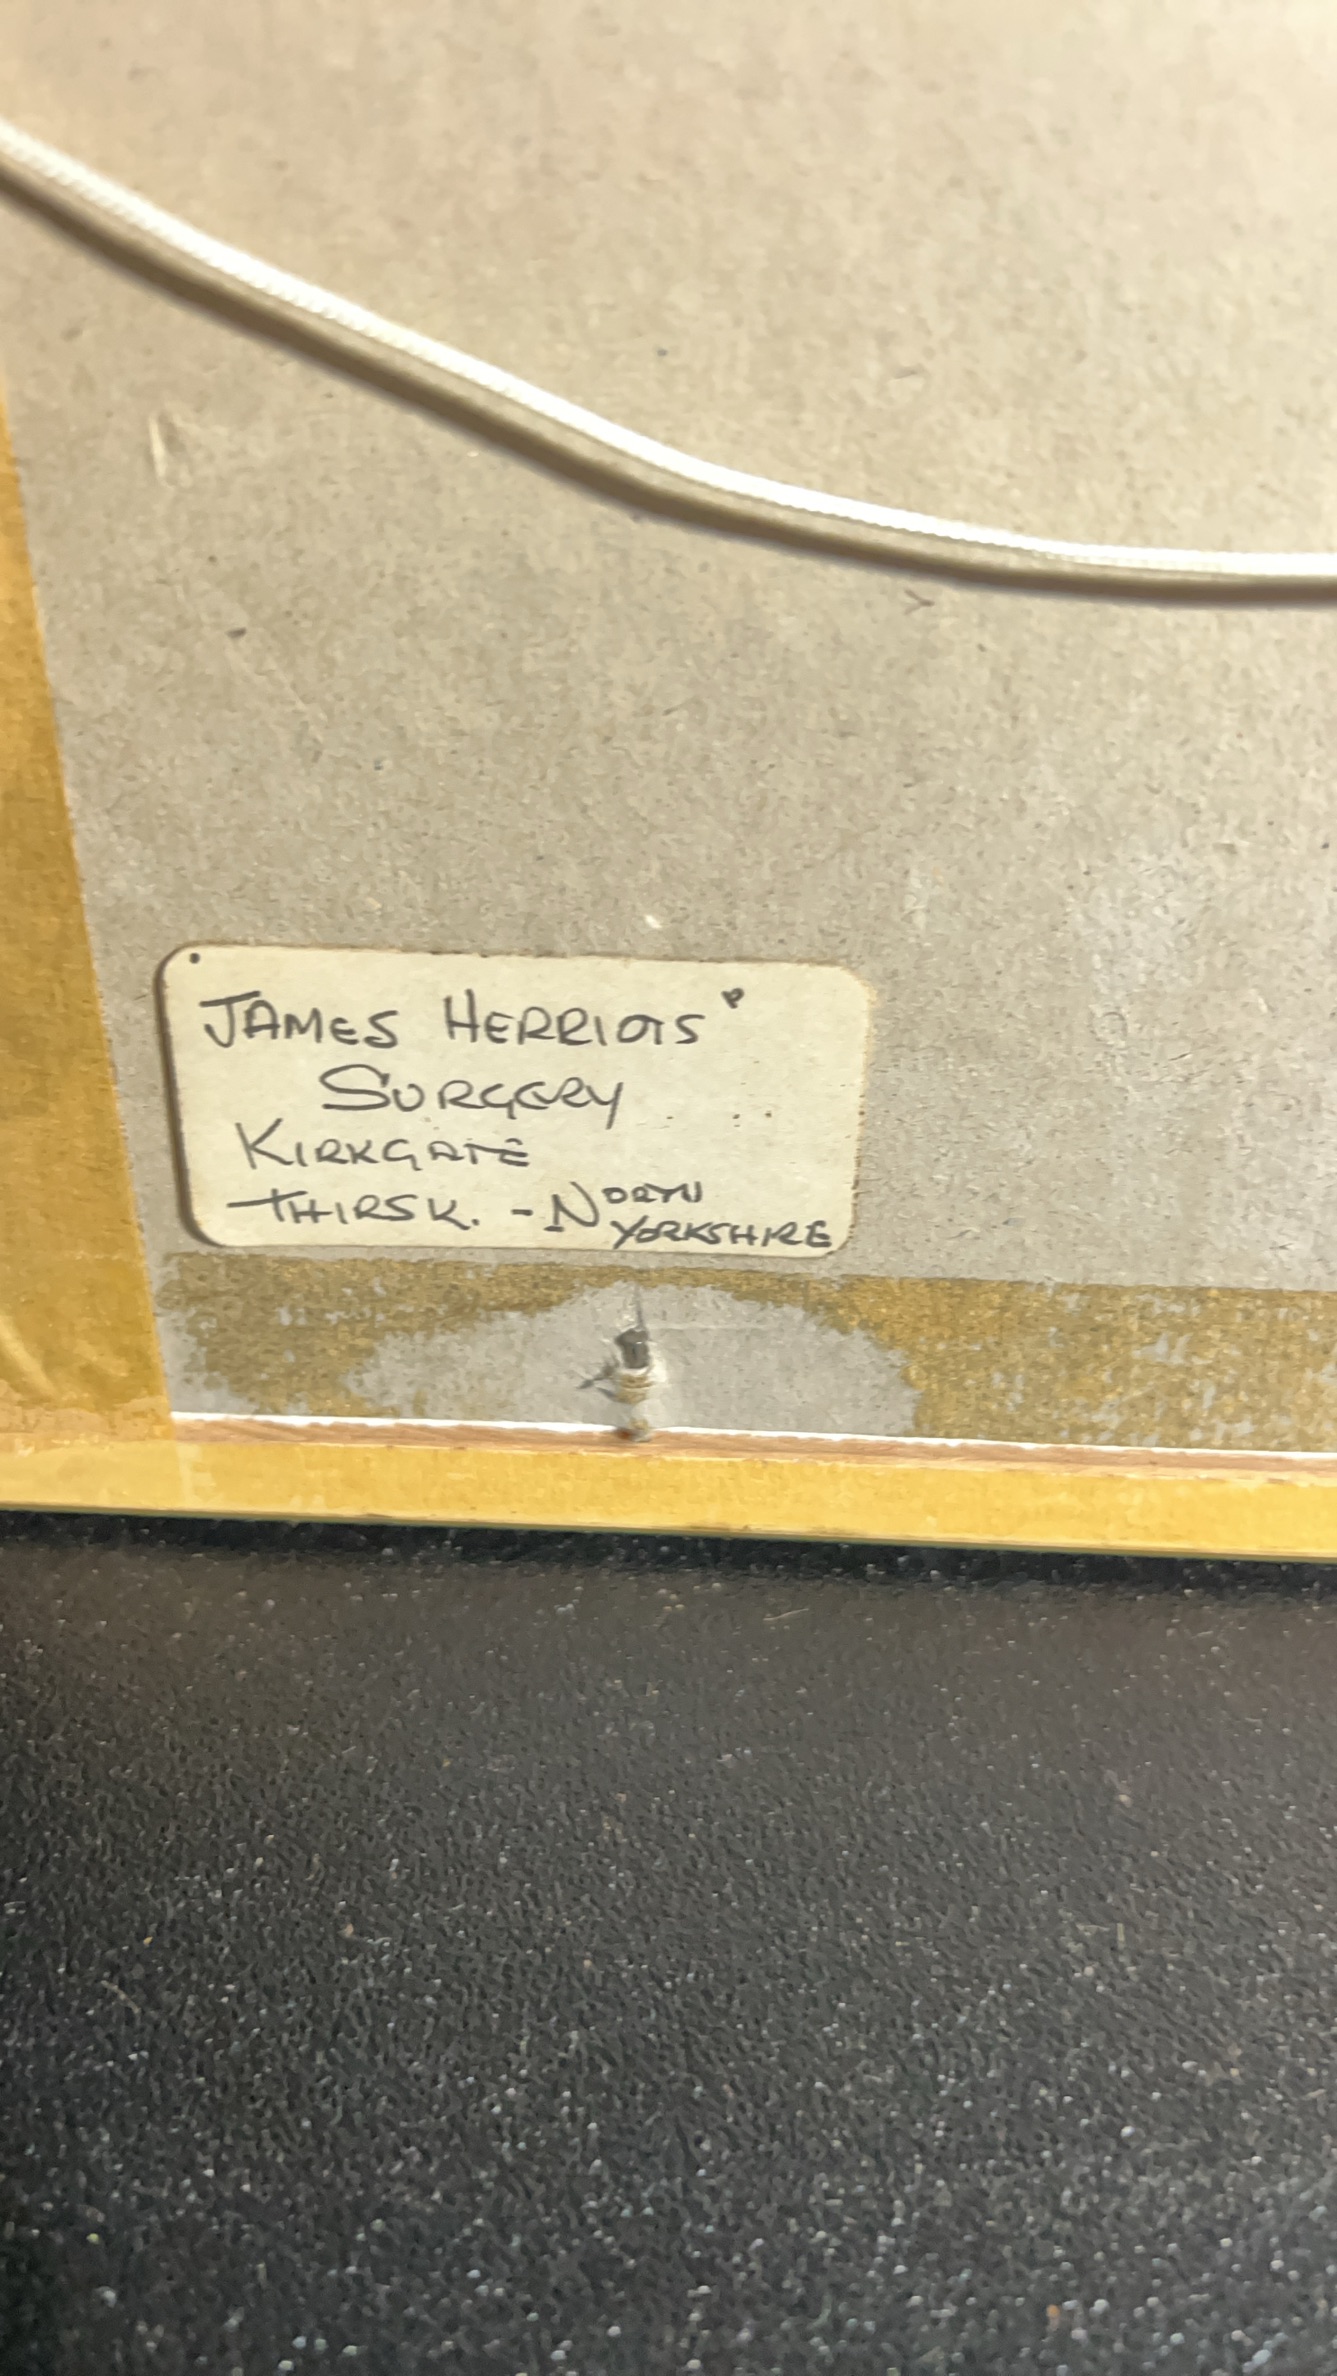 JAMES HERRIOTS
SURGERY
KIRKGATE
THIRSK. - NORTH
YORKSHIRE